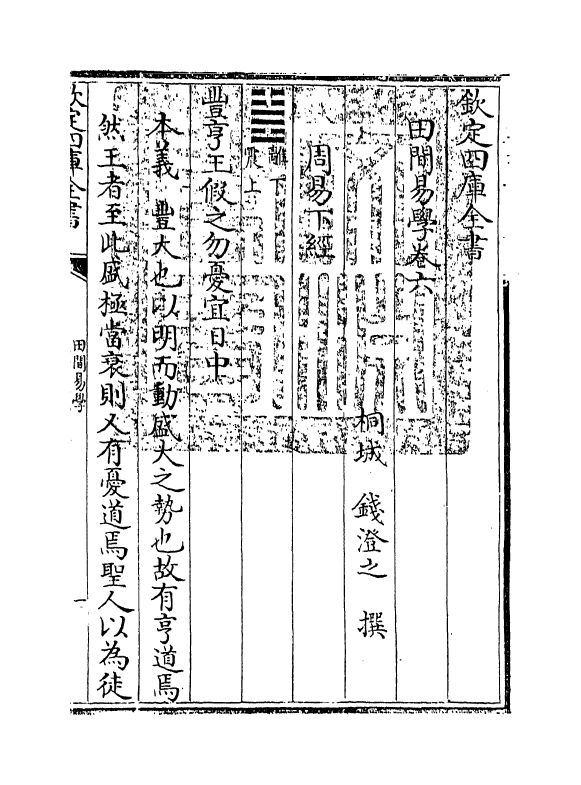 欽定四庫全書
田間易學卷六
桐城 錢澄之 撰
周易下經
離下
震上
豐亨王假之勿憂宜日中
本義豐大也以明而動盛大之勢也故有亨道焉
然王者至此盛極當衰則又有憂道焉聖人以為徒
欽定四庫全書
田間易學
一